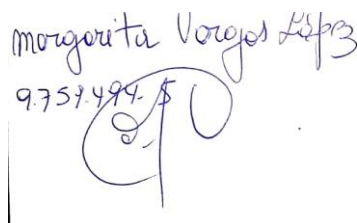 Margarita Vargas López
9.759.494. $